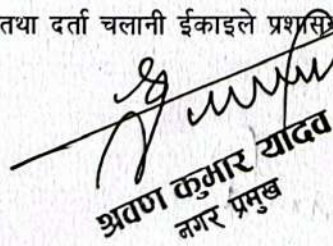 तथा दर्ता चलानी ईकाइले
श्रवण कुमार यादव
नगर प्रमुख